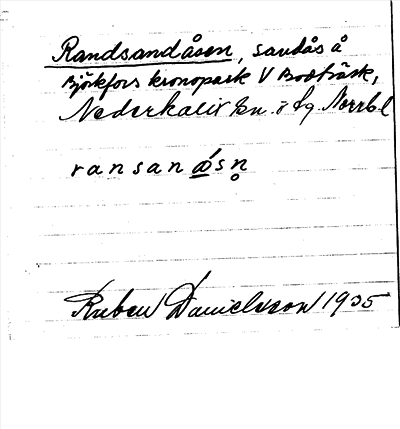 Randsandåsen, sandås å
Björkfors kronopark V Bodträsk,
Nederkalix sn. ö. fg. Norrb. l
ransan ǻsn̥
Ruben Danielsson 1935